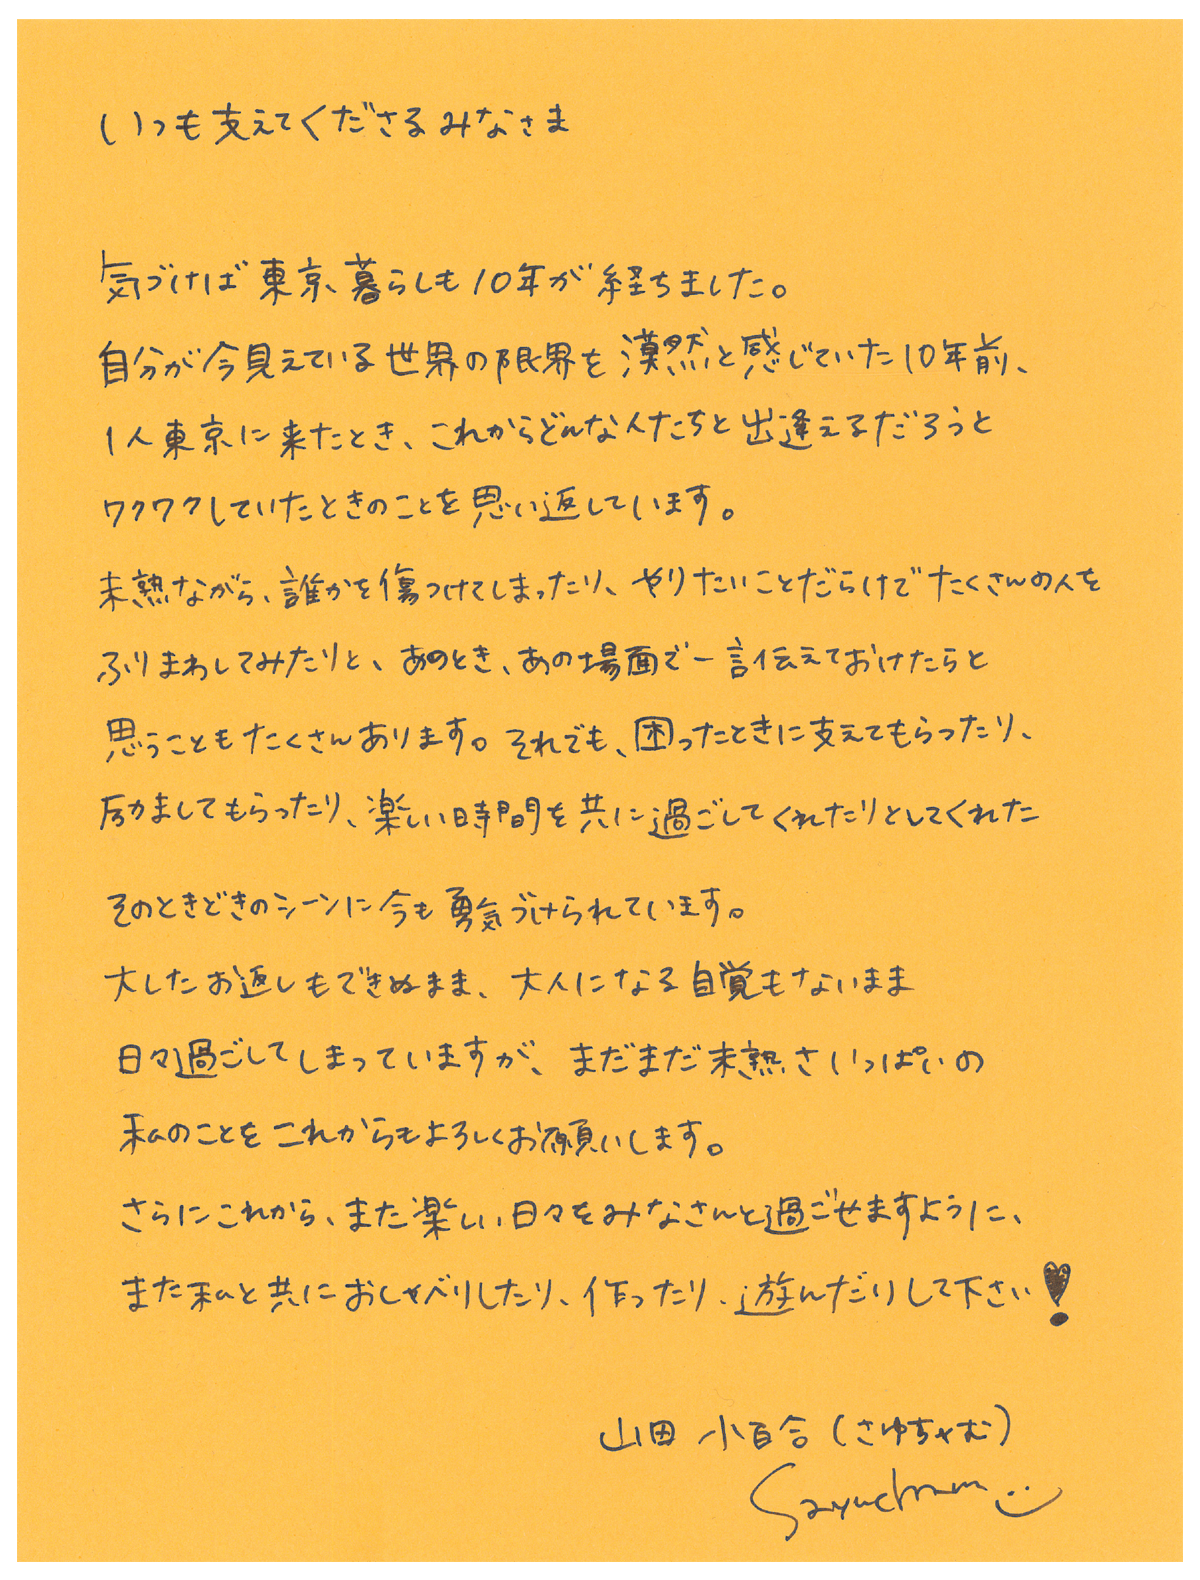 いつも支えてくださるみなさま
気づけば東京暮らしも10年が経ちました。
自分が今見えている世界の限界を漠然と感じていた10年前、
1人東京に来たとき、これからどんな人たちと出逢えるだろうと
ワクワクしていたときのことを思い返しています。
未熟ながら、誰かを傷つけてしまったり、やりたいことだらけでたくさんの人を
ふりまわしてみたりと、あのとき、あの場面で一言伝えておけたらと
思うこともたくさんあります。それでも、困ったときに支えてもらったり、
励ましてもらったり、楽しい時間を共に過ごしてくれたりとしてくれた
そのときどきのシーンに今も勇気づけられています。
大したお返しもできぬまま、大人になる自覚もないまま
日々過ごしてしまっていますが、まだまだ未熟さいっぱいの
私のことをこれからもよろしくお願いします。
さらにこれから、また楽しい日々をみなさんと過ごせますように、
また私と共におしゃべりしたり、作ったり、遊んだりして下さい
山田 小百合(さゆちゃむ)
Sayucham